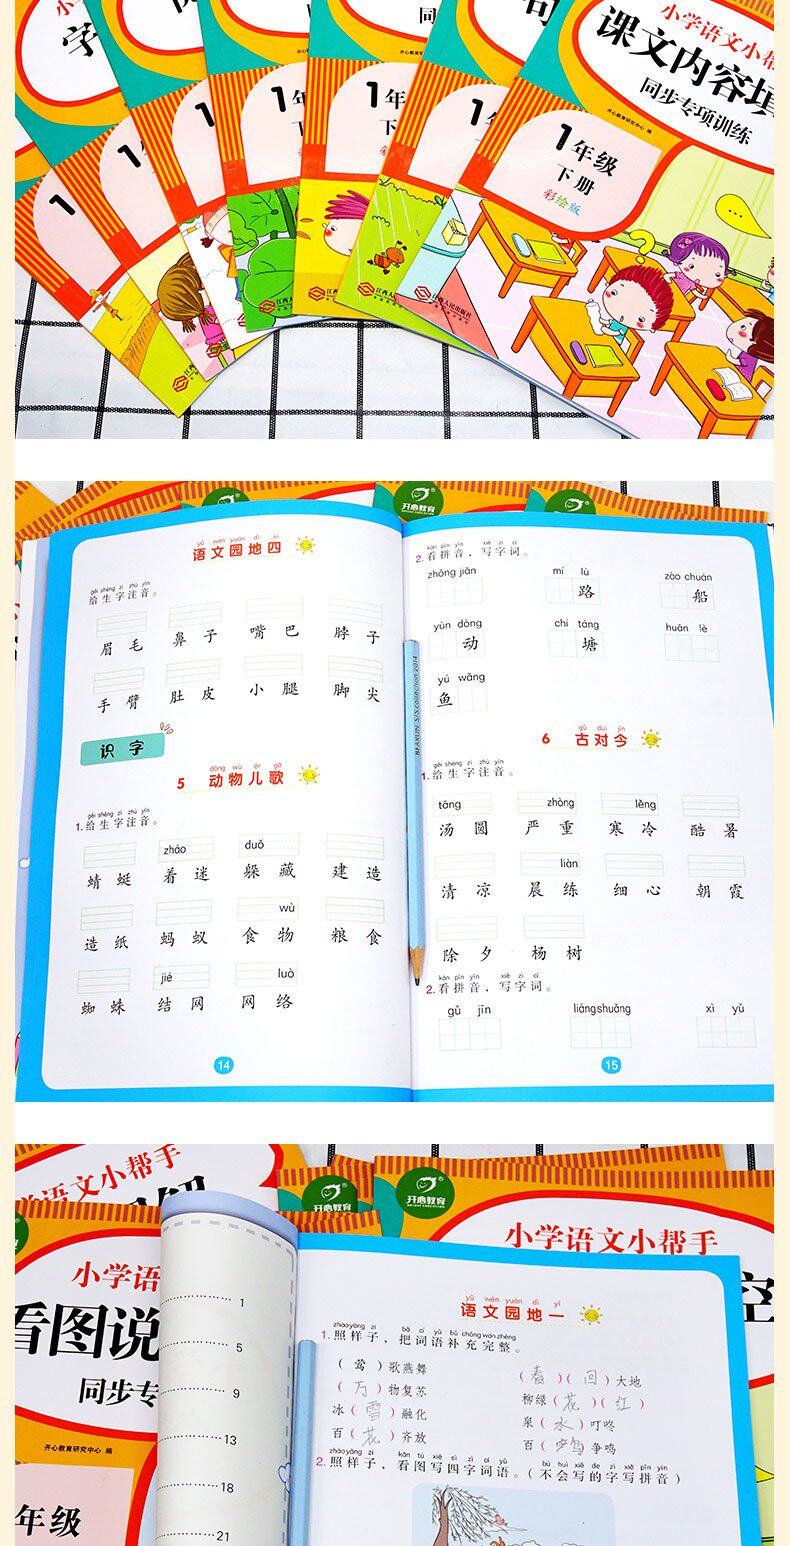 小学语文小帮
课文内容填
同步专项训练
开心教育研究中心 编
1年级
下册
彩绘版
1年
下
1年
下
1
1
1
江西人民出版社
开心教育
yǔ wén yuán dì sì
语文园地四
gěi shēng zì zhù yīn
给生字注音。
眉毛 鼻子 嘴巴 脖子
手臂 肚皮 小腿 脚尖
识字
dòng wù ér gē
5 动物儿歌
gěi shēng zì zhù yīn
1.给生字注音。
zháo duǒ
蜻蜓 着迷 躲藏 建造
wù
造纸 蚂蚁 食物 粮食
jié luò
蜘蛛 结网 网络
14
kàn pīn yīn xiě zì cí
2.看拼音，写字词。
zhōng jiān mí lù zào chuán
路 船
yùn dòng chí táng huān lè
动 塘
yú wǎng
鱼
gǔ duì jīn
6 古对今
gěi shēng zì zhù yīn
1.给生字注音。
tāng zhòng lěng
汤圆 严重 寒冷 酷暑
liàn
清凉 晨练 细心 朝霞
除夕 杨树
kàn pīn yīn xiě zì cí
2.看拼音，写字词。
gǔ jīn liáng shuǎng xì yǔ
15
BEARLIN S/S collection 2014
小学语文小帮手
开心教育
小学语
看图说
同步专
开心教育研究中心 编
年级
小学语文小帮手
空
1
5
9
13
18
21
yǔ wén yuán dì yī
语文园地一
zhào yàng zi bǎ cí yǔ bǔ chōng wán zhěng
1.照样子，把词语补充完整。
（莺）歌燕舞 （春）（回）大地
（万）物复苏 柳绿（花）（红）
冰（雪）融化 泉（水）叮咚
百（花）齐放 百（鸟）争鸣
zhào yàng zi kàn tú xiě sì zì cí yǔ bú huì xiě de zì xiě pīn yīn
2.照样子，看图写四字词语。（不会写的字写拼音）